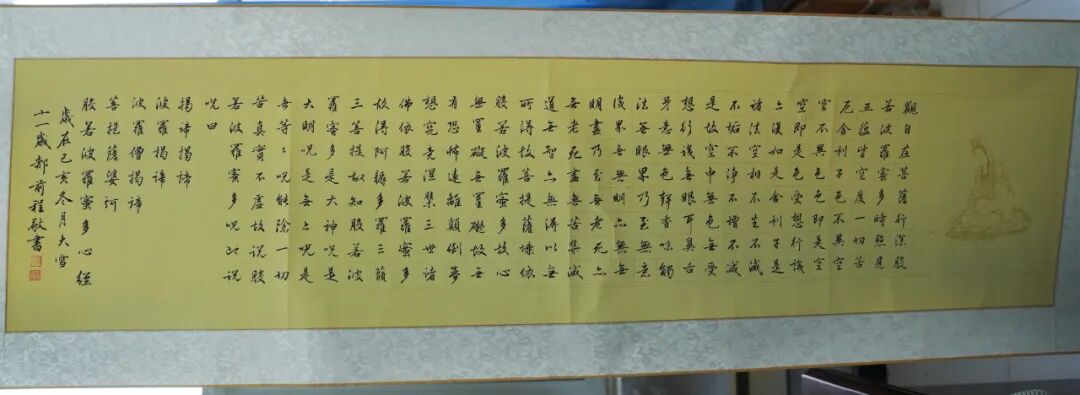 觀自在菩薩行深般
若波羅蜜多時照見
五蘊皆空度一切苦
厄舍利子色不異空
空不異色色即是空
空即是色受想行識
亦復如是舍利子是
諸法空相不生不滅
不垢不淨不增不減
是故空中無色無受
想行識無眼耳鼻舌
身意無色聲香味觸
法無眼界乃至無意
識界無無明亦無無
明盡乃至無老死亦
無老死盡無苦集滅
道無智亦無得以無
所得故菩提薩埵依
般若波羅蜜多故心
無罣礙無罣礙故無
有恐怖遠離顛倒夢
想究竟涅槃三世諸
佛依般若波羅蜜多
故得阿耨多羅三藐
三菩提故知般若波
羅蜜多是大神呪是
大明呪是無上呪是
無等〻呪能除一切
苦真實不虛故說般
若波羅蜜多呪即說
呪曰
揭諦揭諦
波羅揭諦
波羅僧揭諦
菩提薩婆訶
般若波羅蜜多心經
歲在己亥冬月大雪
十一歲郝前程敬書